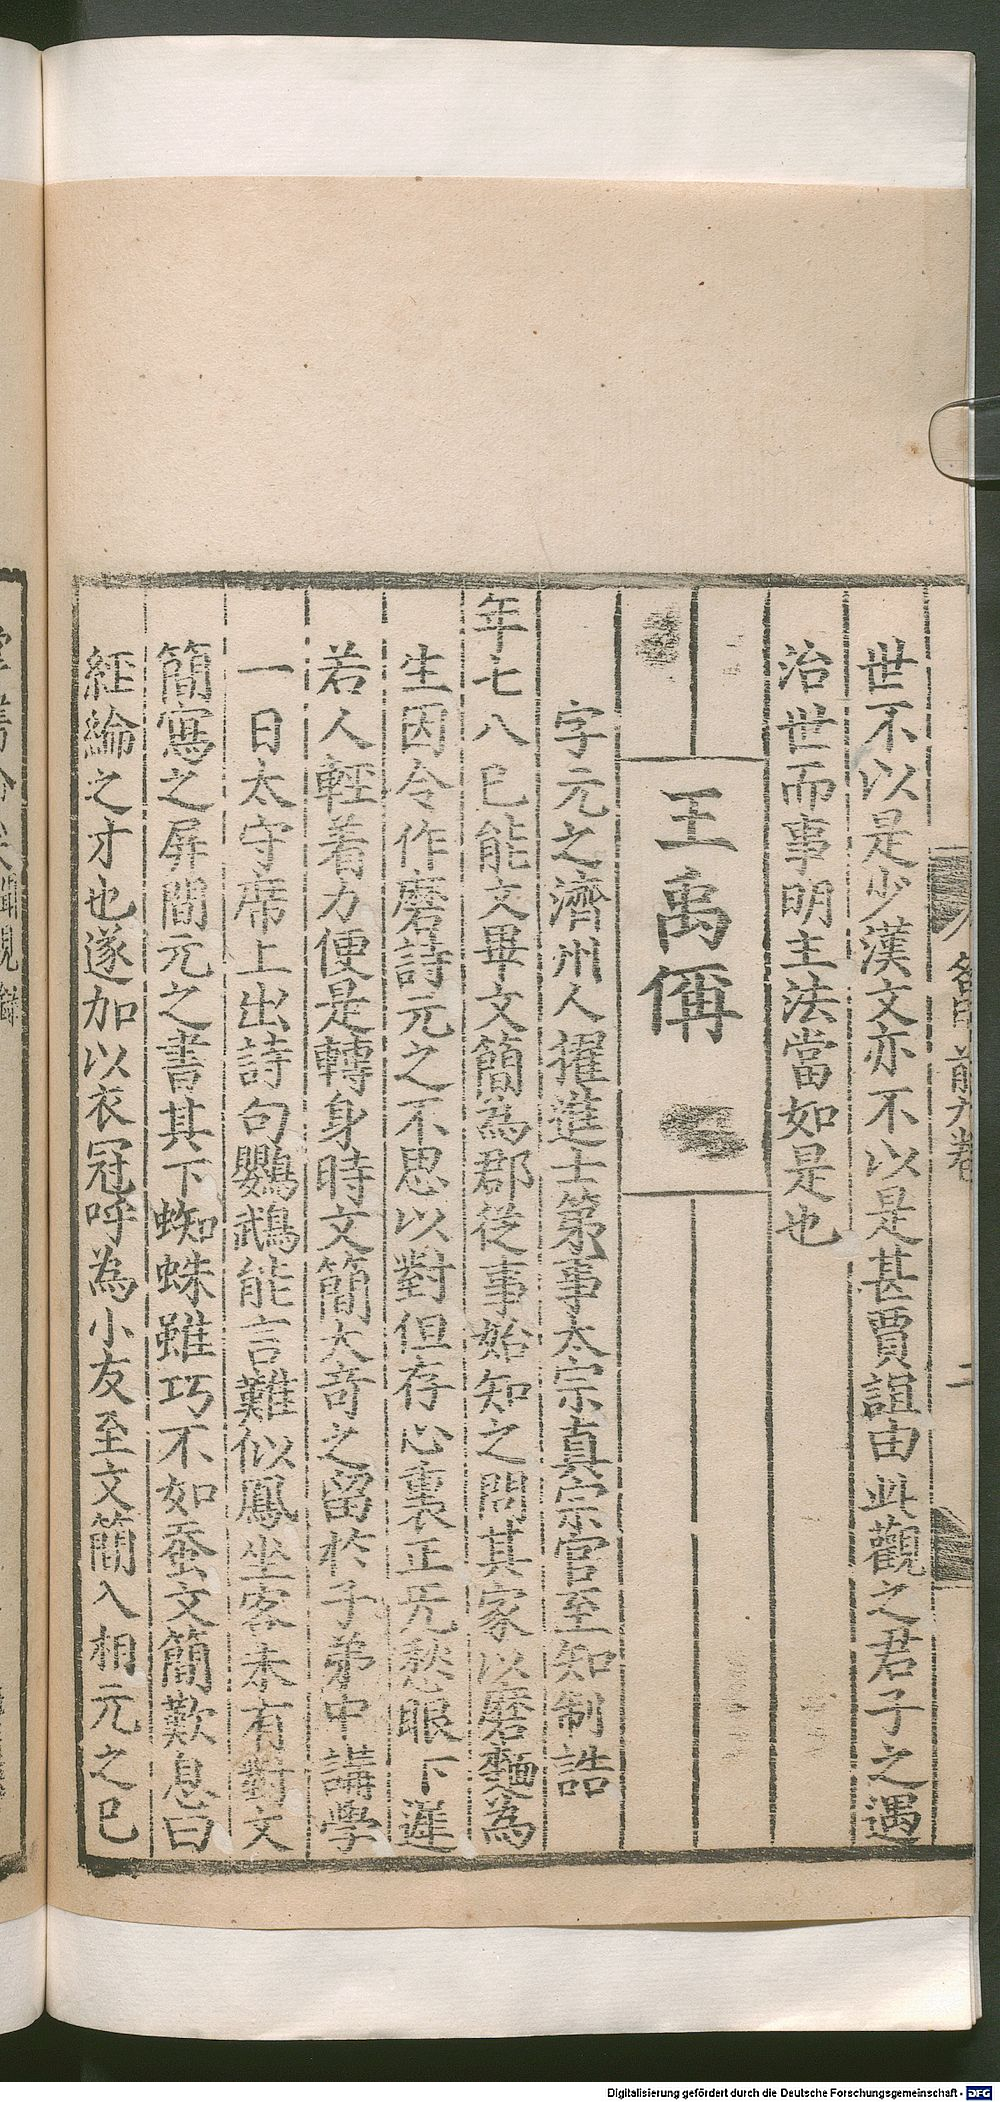 名臣前九卷
二
世不以是少漢文亦不以是甚賈誼由此觀之君子之遇
治世而事明主法當如是也
王禹偁
字元之濟州人擢進士第事太宗真宗官至知制誥
年七八已能文畢文簡為郡從事始知之問其家以磨麵為
生因令作磨詩元之不思以對但存心裏正无愁眼下遲
若人輕着力便是轉身時文簡大奇之留於子弟中講學
一日太守席上出詩句鸚鵡能言難似鳳坐客未有對文
簡寫之屏間元之書其下蜘蛛雖巧不如蚕文簡歎息曰
經綸之才也遂加以衣冠呼為小友至文簡入相元之已
Digitalisierung gefördert durch die Deutsche Forschungsgemeinschaft - DFG